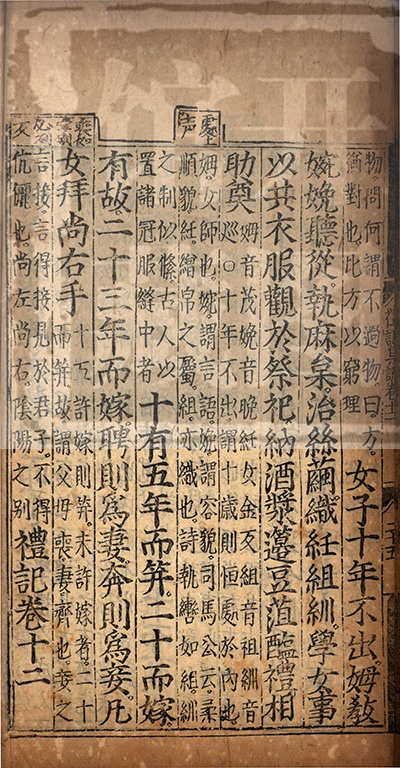 物問何謂不過物曰方。
猶對也比方以窮理
女子十年不出。姆教
婉娩聽從。執麻枲治絲繭織紝組紃。學女事
以共衣服觀於祭祀納酒漿籩豆菹醢禮相
助奠
姆音茂娩音晚紝女金反組音祖紃音
巡○十年不出謂十歲則恒處於內也
處上声
姆女師也。婉謂言語。娩謂容貌。司馬公云。柔
順貌。紝。繒帛之屬。組。亦織也。詩執轡如組。紃
之制似絛。古人以
置諸冠服縫中者
十有五年而笄。二十而嫁。
有故。二十三年而嫁。聘則爲妻。奔則爲妾。凡
女拜尚右手
十五許嫁則笄。未許嫁者。二十
而笄。故。謂父母喪。妻。齊也。妾之
喪如
字別
必列
反
言接。言得接見於君子。不得
伉儷也。尚左尚右。陰陽之別
禮記卷十二